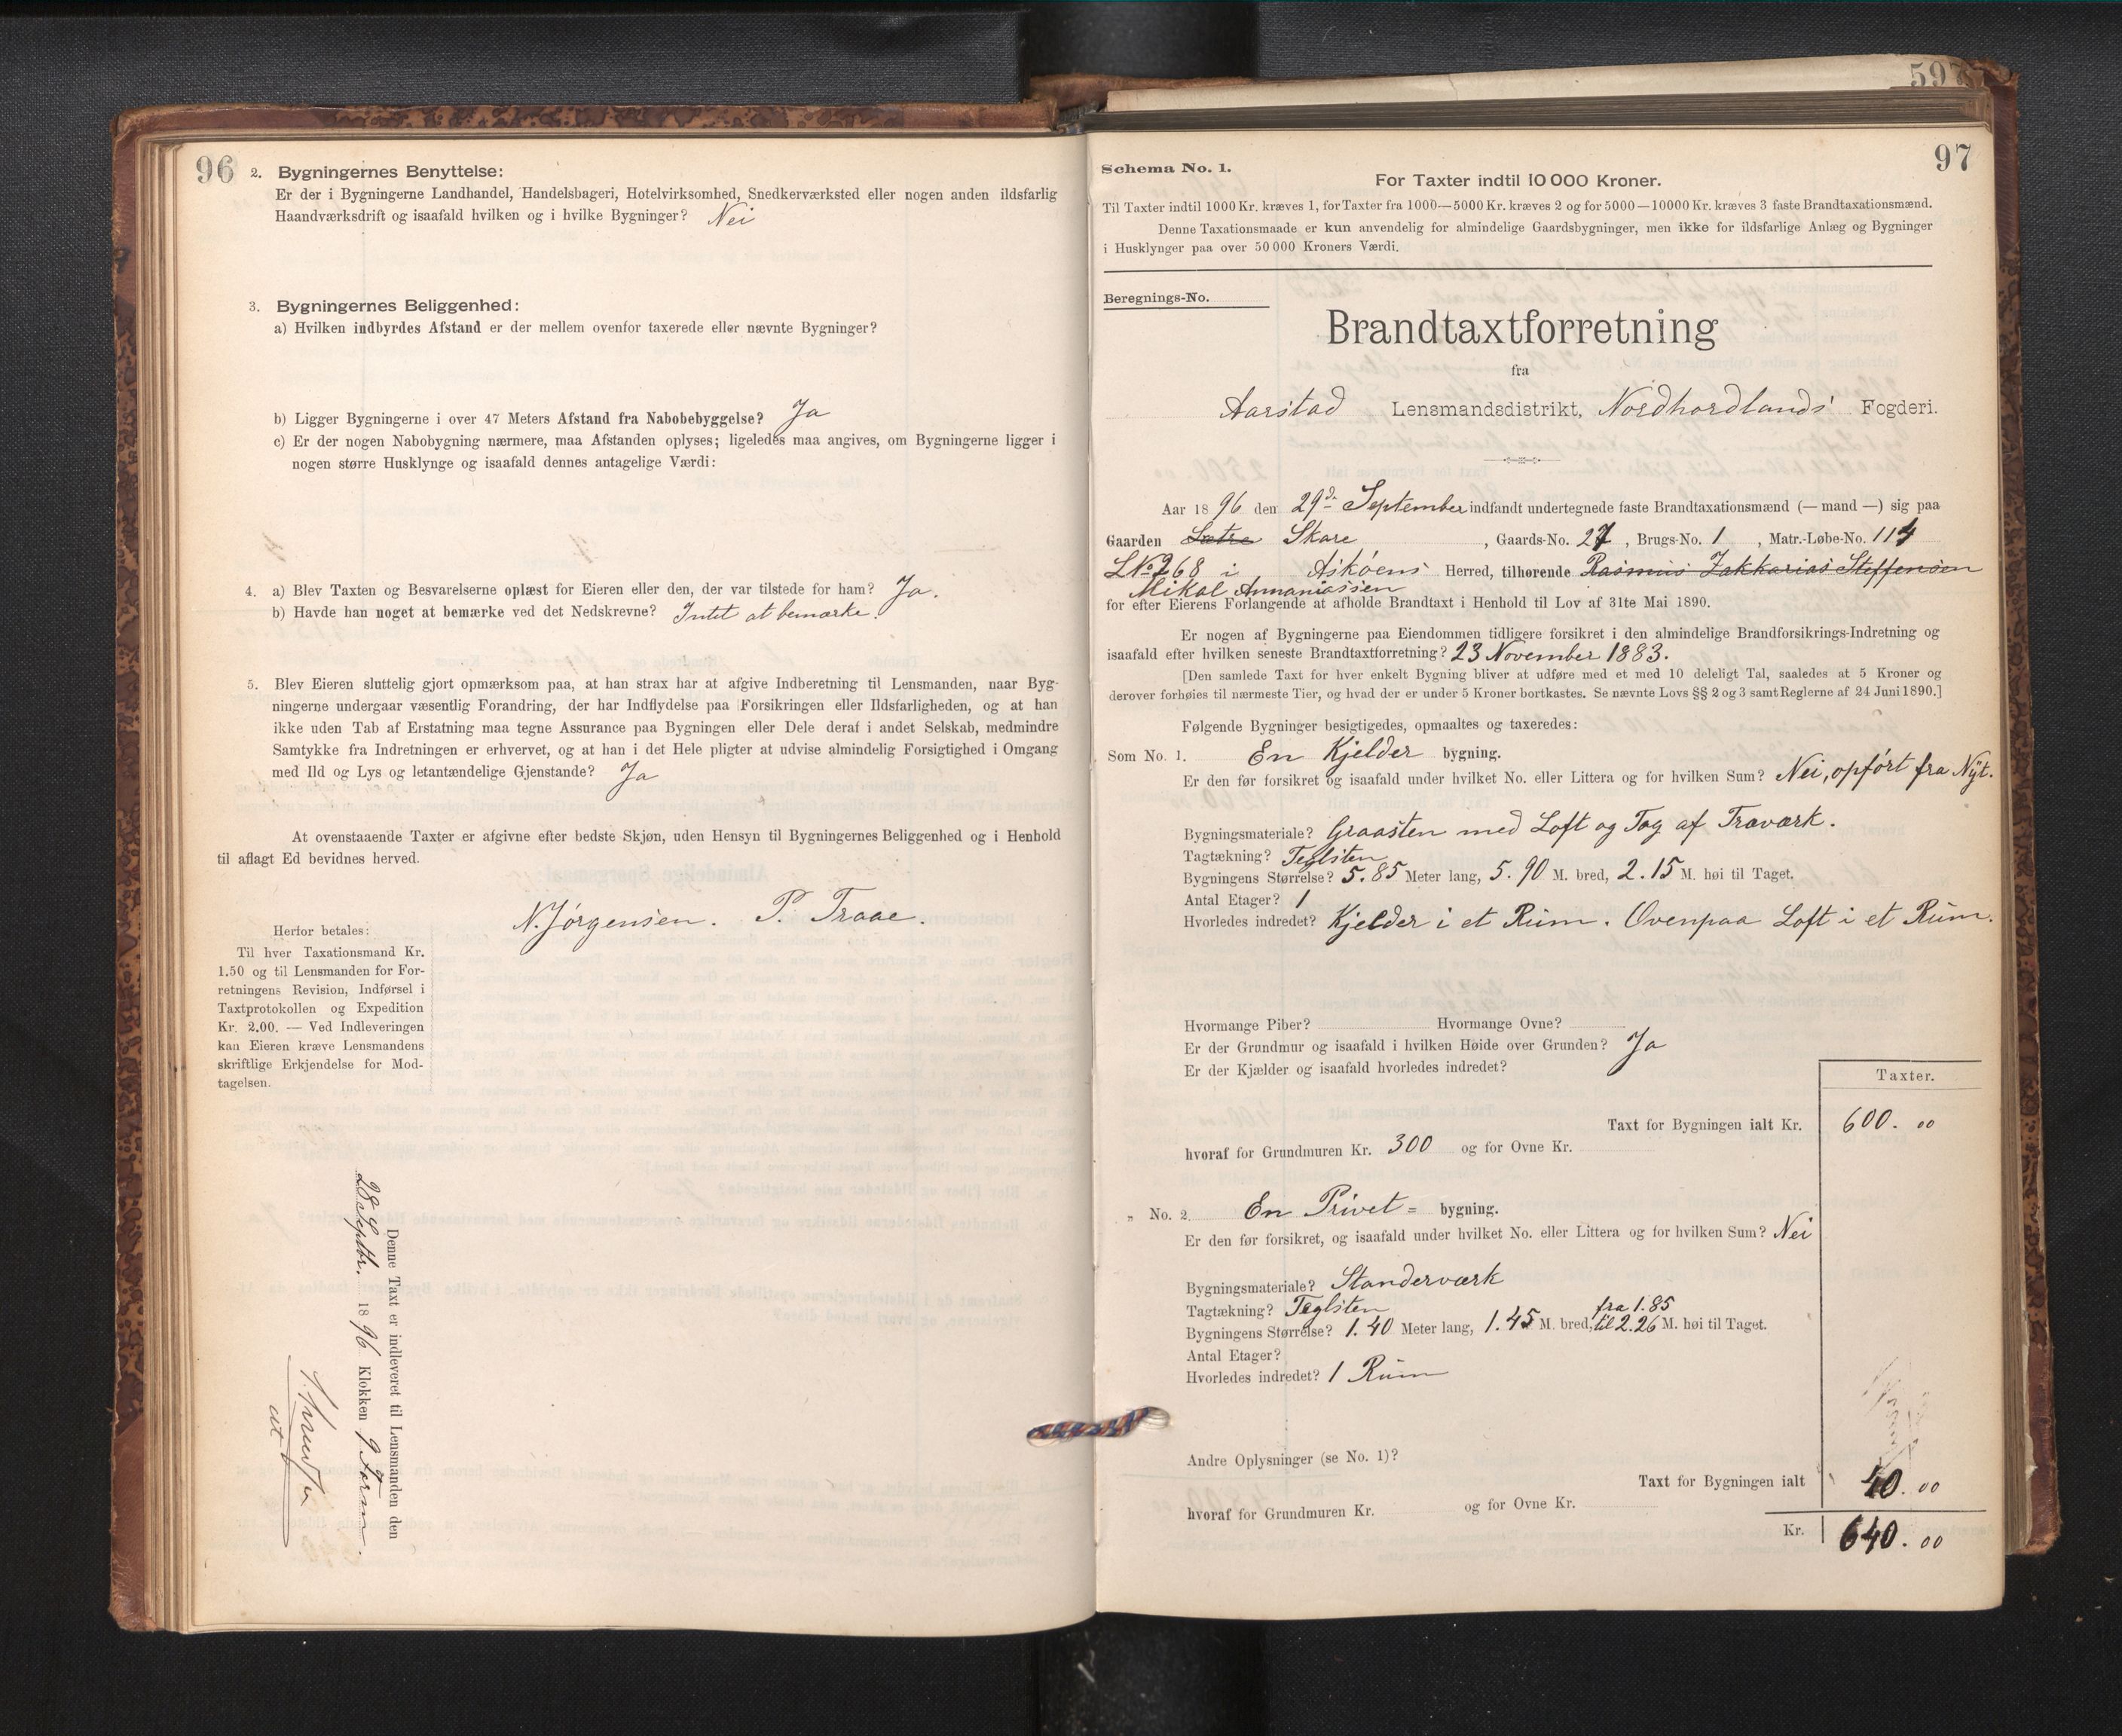 96
2. Bygningernes Benyttelse:
Er der i Bygningerne Landhandel, Handelsbageri, Hotelvirksomhed, Snedkerværksted eller nogen anden ildsfarlig
Haandværksdrift og isaafald hvilken og i hvilke Bygninger? Nei
3. Bygningernes Beliggenhed:
a) Hvilken indbyrdes Afstand er der mellem ovenfor taxerede eller nævnte Bygninger?
b) Ligger Bygningerne i over 47 Meters Afstand fra Nabobebyggelse? Ja
c) Er der nogen Nabobygning nærmere, maa Afstanden oplyses; ligeledes maa angives, om Bygningerne ligger i
nogen større Husklynge og isaafald dennes antagelige Værdi:
4. a) Blev Taxten og Besvarelserne oplæst for Eieren eller den, der var tilstede for ham? Ja.
b) Havde han noget at bemærke ved det Nedskrevne? Intet at bemærke.
5. Blev Eieren sluttelig gjort opmærksom paa, at han strax har at afgive Indberetning til Lensmanden, naar Byg-
ningerne undergaar væsentlig Forandring, der har Indflydelse paa Forsikringen eller Ildsfarligheden, og at han
ikke uden Tab af Erstatning maa tegne Assurance paa Bygningen eller Dele deraf i andet Selskab, medmindre
Samtykke fra Indretningen er erhvervet, og at han i det Hele pligter at udvise almindelig Forsigtighed i Omgang
med Ild og Lys og letantændelige Gjenstande? Ja
At ovenstaaende Taxter er afgivne efter bedste Skjøn, uden Hensyn til Bygningernes Beliggenhed og i Henhold
til aflagt Ed bevidnes herved.
N. Jørgensen. P. Traae.
Herfor betales:
Til hver Taxationsmand Kr.
1.50 og til Lensmanden for For-
retningens Revision, Indførsel i
Taxtprotokollen og Expedition
Kr. 2.00. — Ved Indleveringen
kan Eieren kræve Lensmandens
skriftlige Erkjendelse for Mod-
tagelsen.
Denne Taxt er indleveret til Lensmanden den
28 Septbr. 1896 Klokken 9 Form.
597
97
Schema No. 1.
For Taxter indtil 10 000 Kroner.
Til Taxter indtil 1000 Kr. kræves 1, for Taxter fra 1000—5000 Kr. kræves 2 og for 5000—10000 Kr. kræves 3 faste Brandtaxationsmænd.
Denne Taxationsmaade er kun anvendelig for almindelige Gaardsbygninger, men ikke for ildsfarlige Anlæg og Bygninger
i Husklynger paa over 50 000 Kroners Værdi.
Beregnings-No.
Brandtaxtforretning
fra
Aarstad Lensmandsdistrikt, Nordhordlands Fogderi.
Aar 1896 den 29d. September indfandt undertegnede faste Brandtaxationsmænd (— mand —) sig paa
Gaarden Sætre Skare, Gaards-No. 27, Brugs-No. 1, Matr.-Løbe-No. 114
LNo 268 i Askøens Herred, tilhørende Rasmus Zakkarias Steffensen
Mikal Annaniassen
for efter Eierens Forlangende at afholde Brandtaxt i Henhold til Lov af 31te Mai 1890.
Er nogen af Bygningerne paa Eiendommen tidligere forsikret i den almindelige Brandforsikrings-Indretning og
isaafald efter hvilken seneste Brandtaxtforretning? 23 November 1883.
[Den samlede Taxt for hver enkelt Bygning bliver at udføre med et med 10 deleligt Tal, saaledes at 5 Kroner og
derover forhøies til nærmeste Tier, og hvad der er under 5 Kroner bortkastes. Se nævnte Lovs §§ 2 og 3 samt Reglerne af 24 Juni 1890.]
Følgende Bygninger besigtigedes, opmaaltes og taxeredes:
Som No. 1. En Kjelder bygning.
Er den før forsikret og isaafald under hvilket No. eller Littera og for hvilken Sum? Nei, opført fra Nyt.
Bygningsmateriale? Graasten med Loft og Tag af Træværk.
Tagtækning? Teglsten
Bygningens Størrelse? 5.85 Meter lang, 5.90 M. bred, 2.15 M. høi til Taget.
Antal Etager? 1
Hvorledes indredet? Kjelder i et Rum. Ovenpaa Loft i et Rum.
Hvormange Piber? Hvormange Ovne?
Er der Grundmur og isaafald i hvilken Høide over Grunden? Ja
Er der Kjælder og isaafald hvorledes indredet?
Taxter.
Taxt for Bygningen ialt Kr. 600. 00
hvoraf for Grundmuren Kr. 300 og for Ovne Kr.
„ No. 2 En Privet = bygning.
Er den før forsikret, og isaafald under hvilket No. eller Littera og for hvilken Sum? Nei
Bygningsmateriale? Standerværk
Tagtækning? Teglsten
Bygningens Størrelse? 1.40 Meter lang, 1.45 M. bred, fra 1.85 til 2.26 M. høi til Taget.
Antal Etager?
Hvorledes indredet? 1 Rum
Andre Oplysninger (se No. 1)?
Taxt for Bygningen ialt 40. 00
hvoraf for Grundmuren Kr. og for Ovne Kr.
Kr. 640. 00